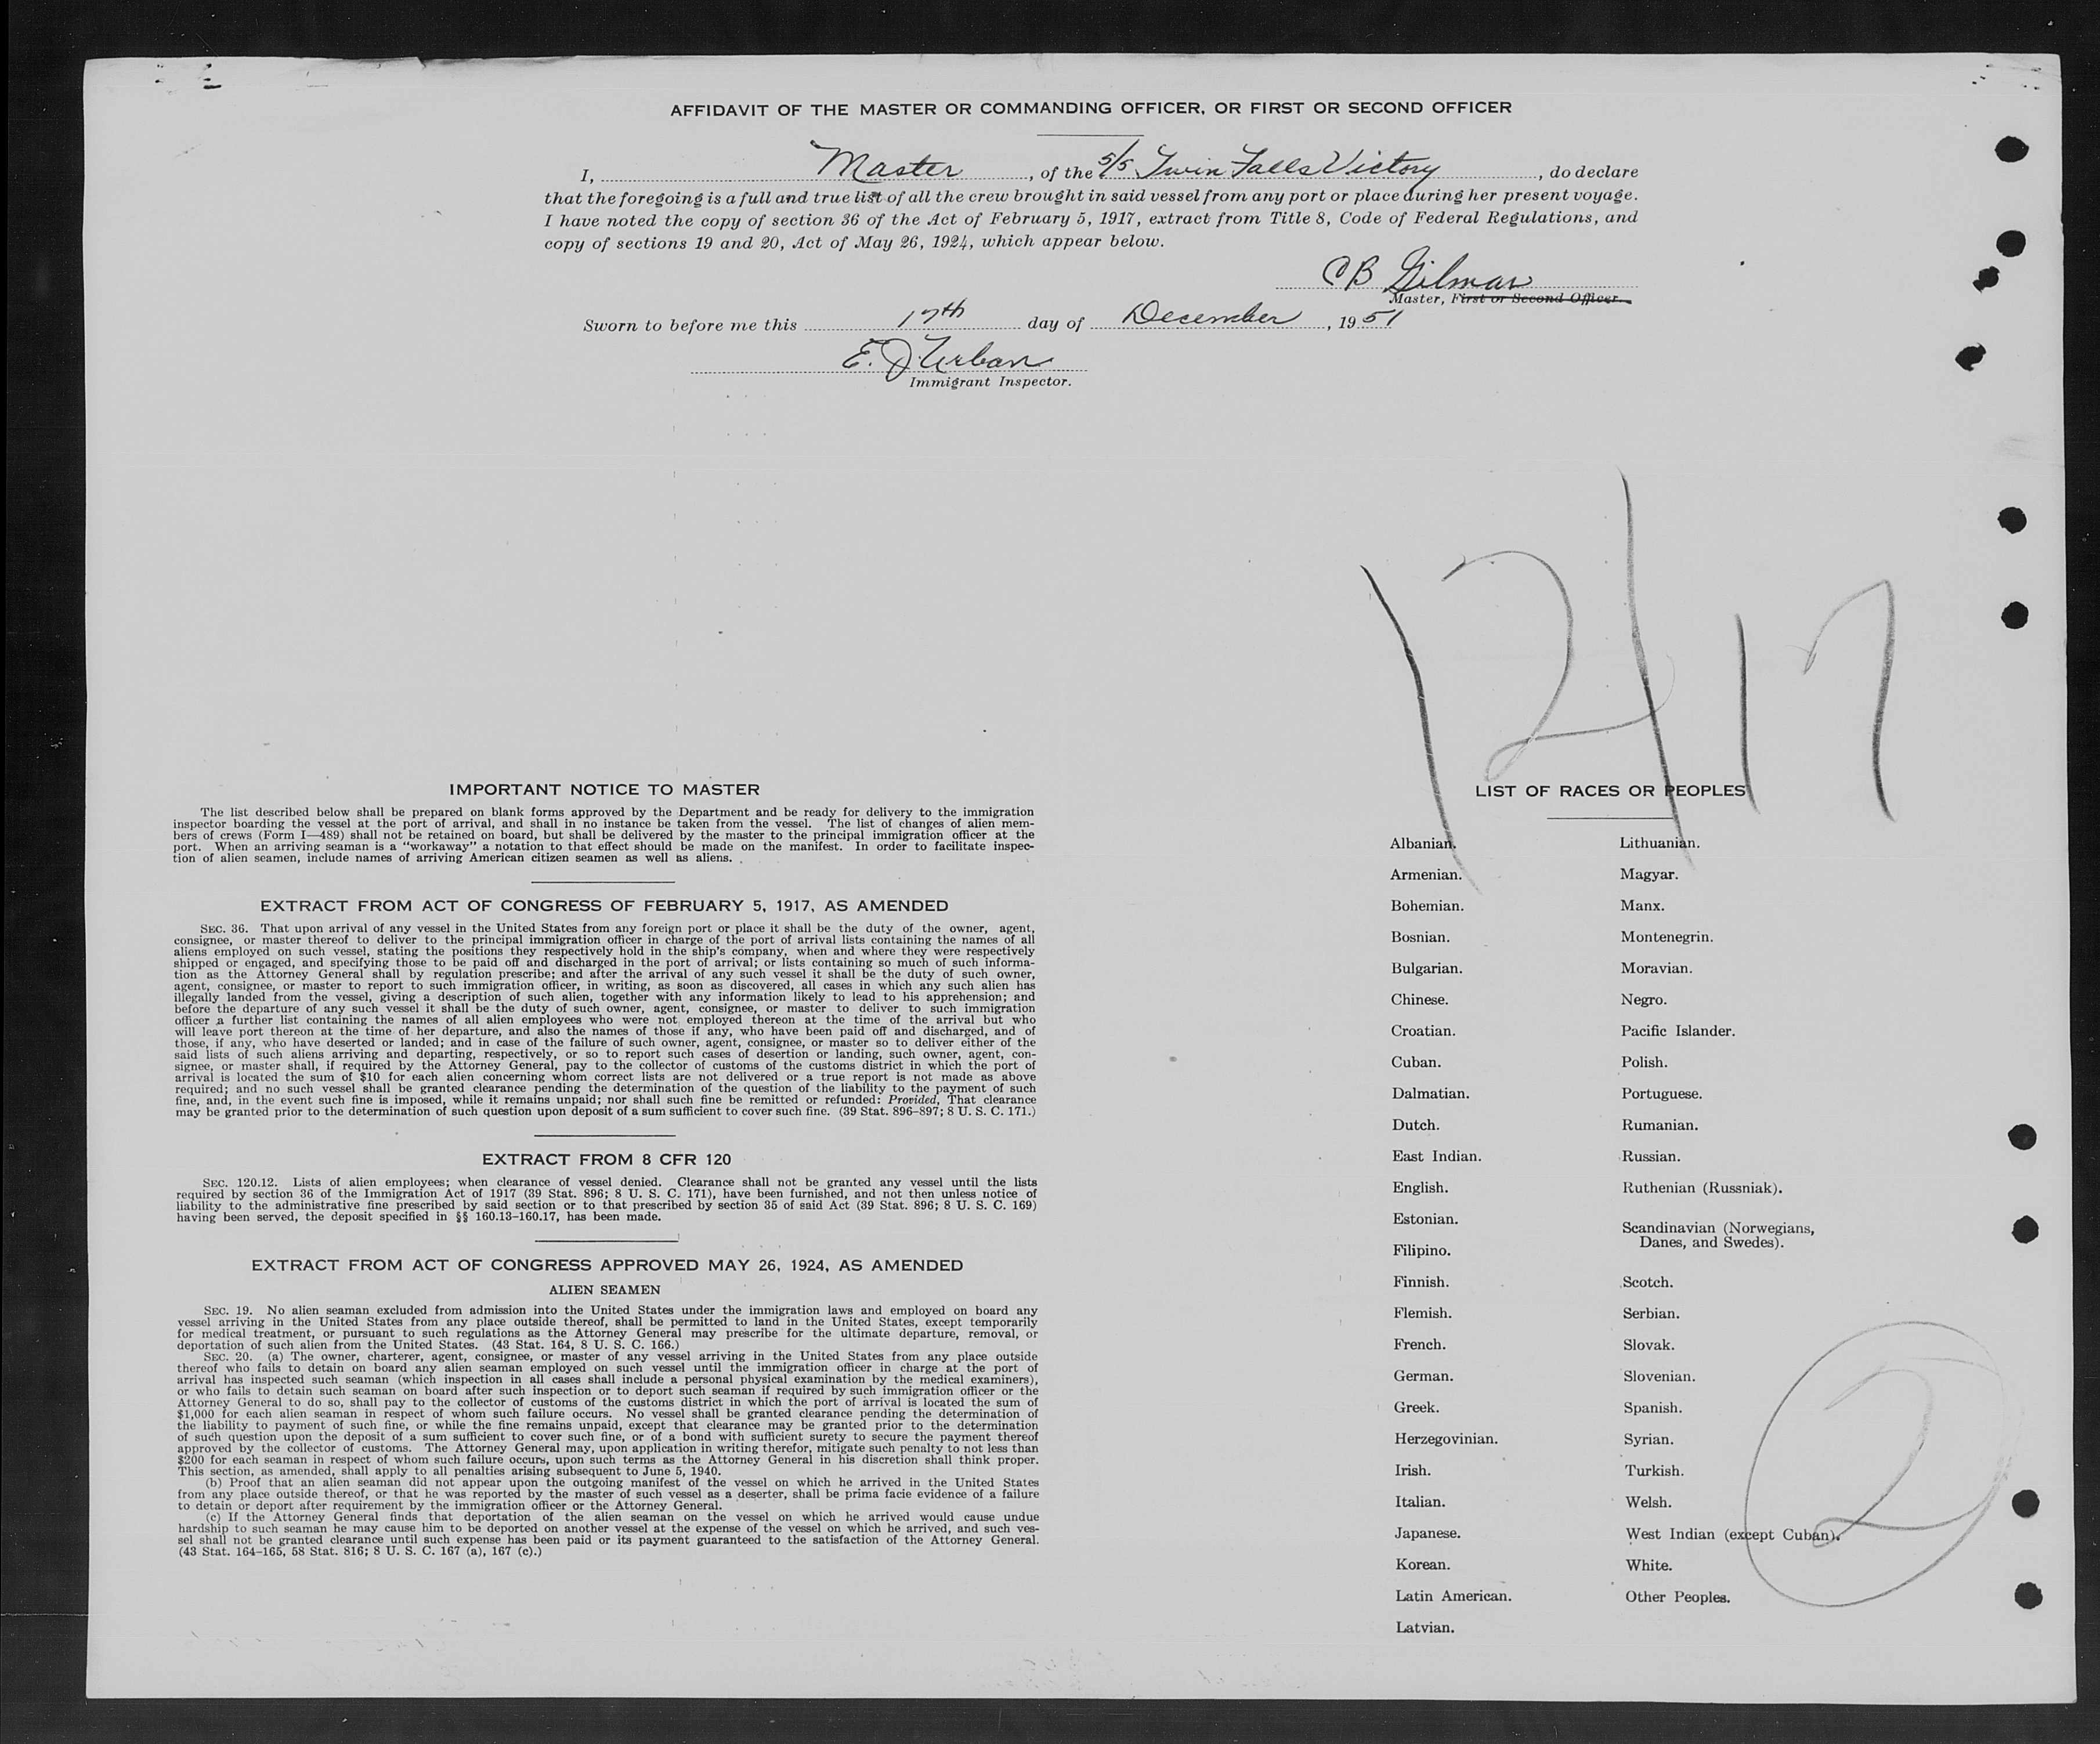 AFFIDAVIT OF THE MASTER OR COMMANDING OFFICER, OR FIRST OR SECOND OFFICER
I, Master, of the S/S Twin Falls Victory, do declare
that the foregoing is a full and true list of all the crew brought in said vessel from any port or place during her present voyage.
I have noted the copy of section 36 of the Act of February 5, 1917, extract from Title 8, Code of Federal Regulations, and
copy of sections 19 and 20, Act of May 26, 1924, which appear below.
CB Gilman
Master, First or Second Officer.
Sworn to before me this 17th day of December, 1951
E. J. Urban
Immigrant Inspector.
12/17
IMPORTANT NOTICE TO MASTER
The list described below shall be prepared on blank forms approved by the Department and be ready for delivery to the immigration
inspector boarding the vessel at the port of arrival, and shall in no instance be taken from the vessel. The list of changes of alien mem-
bers of crews (Form I—489) shall not be retained on board, but shall be delivered by the master to the principal immigration officer at the
port. When an arriving seaman is a "workaway" a notation to that effect should be made on the manifest. In order to facilitate inspec-
tion of alien seamen, include names of arriving American citizen seamen as well as aliens.
EXTRACT FROM ACT OF CONGRESS OF FEBRUARY 5, 1917, AS AMENDED
SEC. 36. That upon arrival of any vessel in the United States from any foreign port or place it shall be the duty of the owner, agent,
consignee, or master thereof to deliver to the principal immigration officer in charge of the port of arrival lists containing the names of all
aliens employed on such vessel, stating the positions they respectively hold in the ship's company, when and where they were respectively
shipped or engaged, and specifying those to be paid off and discharged in the port of arrival; or lists containing so much of such informa-
tion as the Attorney General shall by regulation prescribe; and after the arrival of any such vessel it shall be the duty of such owner,
agent, consignee, or master to report to such immigration officer, in writing, as soon as discovered, all cases in which any such alien has
illegally landed from the vessel, giving a description of such alien, together with any information likely to lead to his apprehension; and
before the departure of any such vessel it shall be the duty of such owner, agent, consignee, or master to deliver to such immigration
officer a further list containing the names of all alien employees who were not employed thereon at the time of the arrival but who
will leave port thereon at the time of her departure, and also the names of those if any, who have been paid off and discharged, and of
those, if any, who have deserted or landed; and in case of the failure of such owner, agent, consignee, or master so to deliver either of the
said lists of such aliens arriving and departing, respectively, or so to report such cases of desertion or landing, such owner, agent, con-
signee, or master shall, if required by the Attorney General, pay to the collector of customs of the customs district in which the port of
arrival is located the sum of $10 for each alien concerning whom correct lists are not delivered or a true report is not made as above
required; and no such vessel shall be granted clearance pending the determination of the question of the liability to the payment of such
fine, and, in the event such fine is imposed, while it remains unpaid; nor shall such fine be remitted or refunded: Provided, That clearance
may be granted prior to the determination of such question upon deposit of a sum sufficient to cover such fine. (39 Stat. 896–897; 8 U. S. C. 171.)
EXTRACT FROM 8 CFR 120
SEC. 120.12. Lists of alien employees; when clearance of vessel denied. Clearance shall not be granted any vessel until the lists
required by section 36 of the Immigration Act of 1917 (39 Stat. 896; 8 U. S. C. 171), have been furnished, and not then unless notice of
liability to the administrative fine prescribed by said section or to that prescribed by section 35 of said Act (39 Stat. 896; 8 U. S. C. 169)
having been served, the deposit specified in §§ 160.13–160.17, has been made.
EXTRACT FROM ACT OF CONGRESS APPROVED MAY 26, 1924, AS AMENDED
ALIEN SEAMEN
SEC. 19. No alien seaman excluded from admission into the United States under the immigration laws and employed on board any
vessel arriving in the United States from any place outside thereof, shall be permitted to land in the United States, except temporarily
for medical treatment, or pursuant to such regulations as the Attorney General may prescribe for the ultimate departure, removal, or
deportation of such alien from the United States. (43 Stat. 164, 8 U. S. C. 166.)
SEC. 20. (a) The owner, charterer, agent, consignee, or master of any vessel arriving in the United States from any place outside
thereof who fails to detain on board any alien seaman employed on such vessel until the immigration officer in charge at the port of
arrival has inspected such seaman (which inspection in all cases shall include a personal physical examination by the medical examiners),
or who fails to detain such seaman on board after such inspection or to deport such seaman if required by such immigration officer or the
Attorney General to do so, shall pay to the collector of customs of the customs district in which the port of arrival is located the sum of
$1,000 for each alien seaman in respect of whom such failure occurs. No vessel shall be granted clearance pending the determination of
the liability to payment of such fine, or while the fine remains unpaid, except that clearance may be granted prior to the determination
of such question upon the deposit of a sum sufficient to cover such fine, or of a bond with sufficient surety to secure the payment thereof
approved by the collector of customs. The Attorney General may, upon application in writing therefor, mitigate such penalty to not less than
$200 for each seaman in respect of whom such failure occurs, upon such terms as the Attorney General in his discretion shall think proper.
This section, as amended, shall apply to all penalties arising subsequent to June 5, 1940.
(b) Proof that an alien seaman did not appear upon the outgoing manifest of the vessel on which he arrived in the United States
from any place outside thereof, or that he was reported by the master of such vessel as a deserter, shall be prima facie evidence of a failure
to detain or deport after requirement by the immigration officer or the Attorney General.
(c) If the Attorney General finds that deportation of the alien seaman on the vessel on which he arrived would cause undue
hardship to such seaman he may cause him to be deported on another vessel at the expense of the vessel on which he arrived, and such ves-
sel shall not be granted clearance until such expense has been paid or its payment guaranteed to the satisfaction of the Attorney General.
(43 Stat. 164–165, 58 Stat. 816; 8 U. S. C. 167 (a), 167 (c).)
LIST OF RACES OR PEOPLES
Albanian.
Armenian.
Bohemian.
Bosnian.
Bulgarian.
Chinese.
Croatian.
Cuban.
Dalmatian.
Dutch.
East Indian.
English.
Estonian.
Filipino.
Finnish.
Flemish.
French.
German.
Greek.
Herzegovinian.
Irish.
Italian.
Japanese.
Korean.
Latin American.
Latvian.
Lithuanian.
Magyar.
Manx.
Montenegrin.
Moravian.
Negro.
Pacific Islander.
Polish.
Portuguese.
Rumanian.
Russian.
Ruthenian (Russniak).
Scandinavian (Norwegians,
Danes, and Swedes).
Scotch.
Serbian.
Slovak.
Slovenian.
Spanish.
Syrian.
Turkish.
Welsh.
West Indian (except Cuban).
White.
Other Peoples.
2